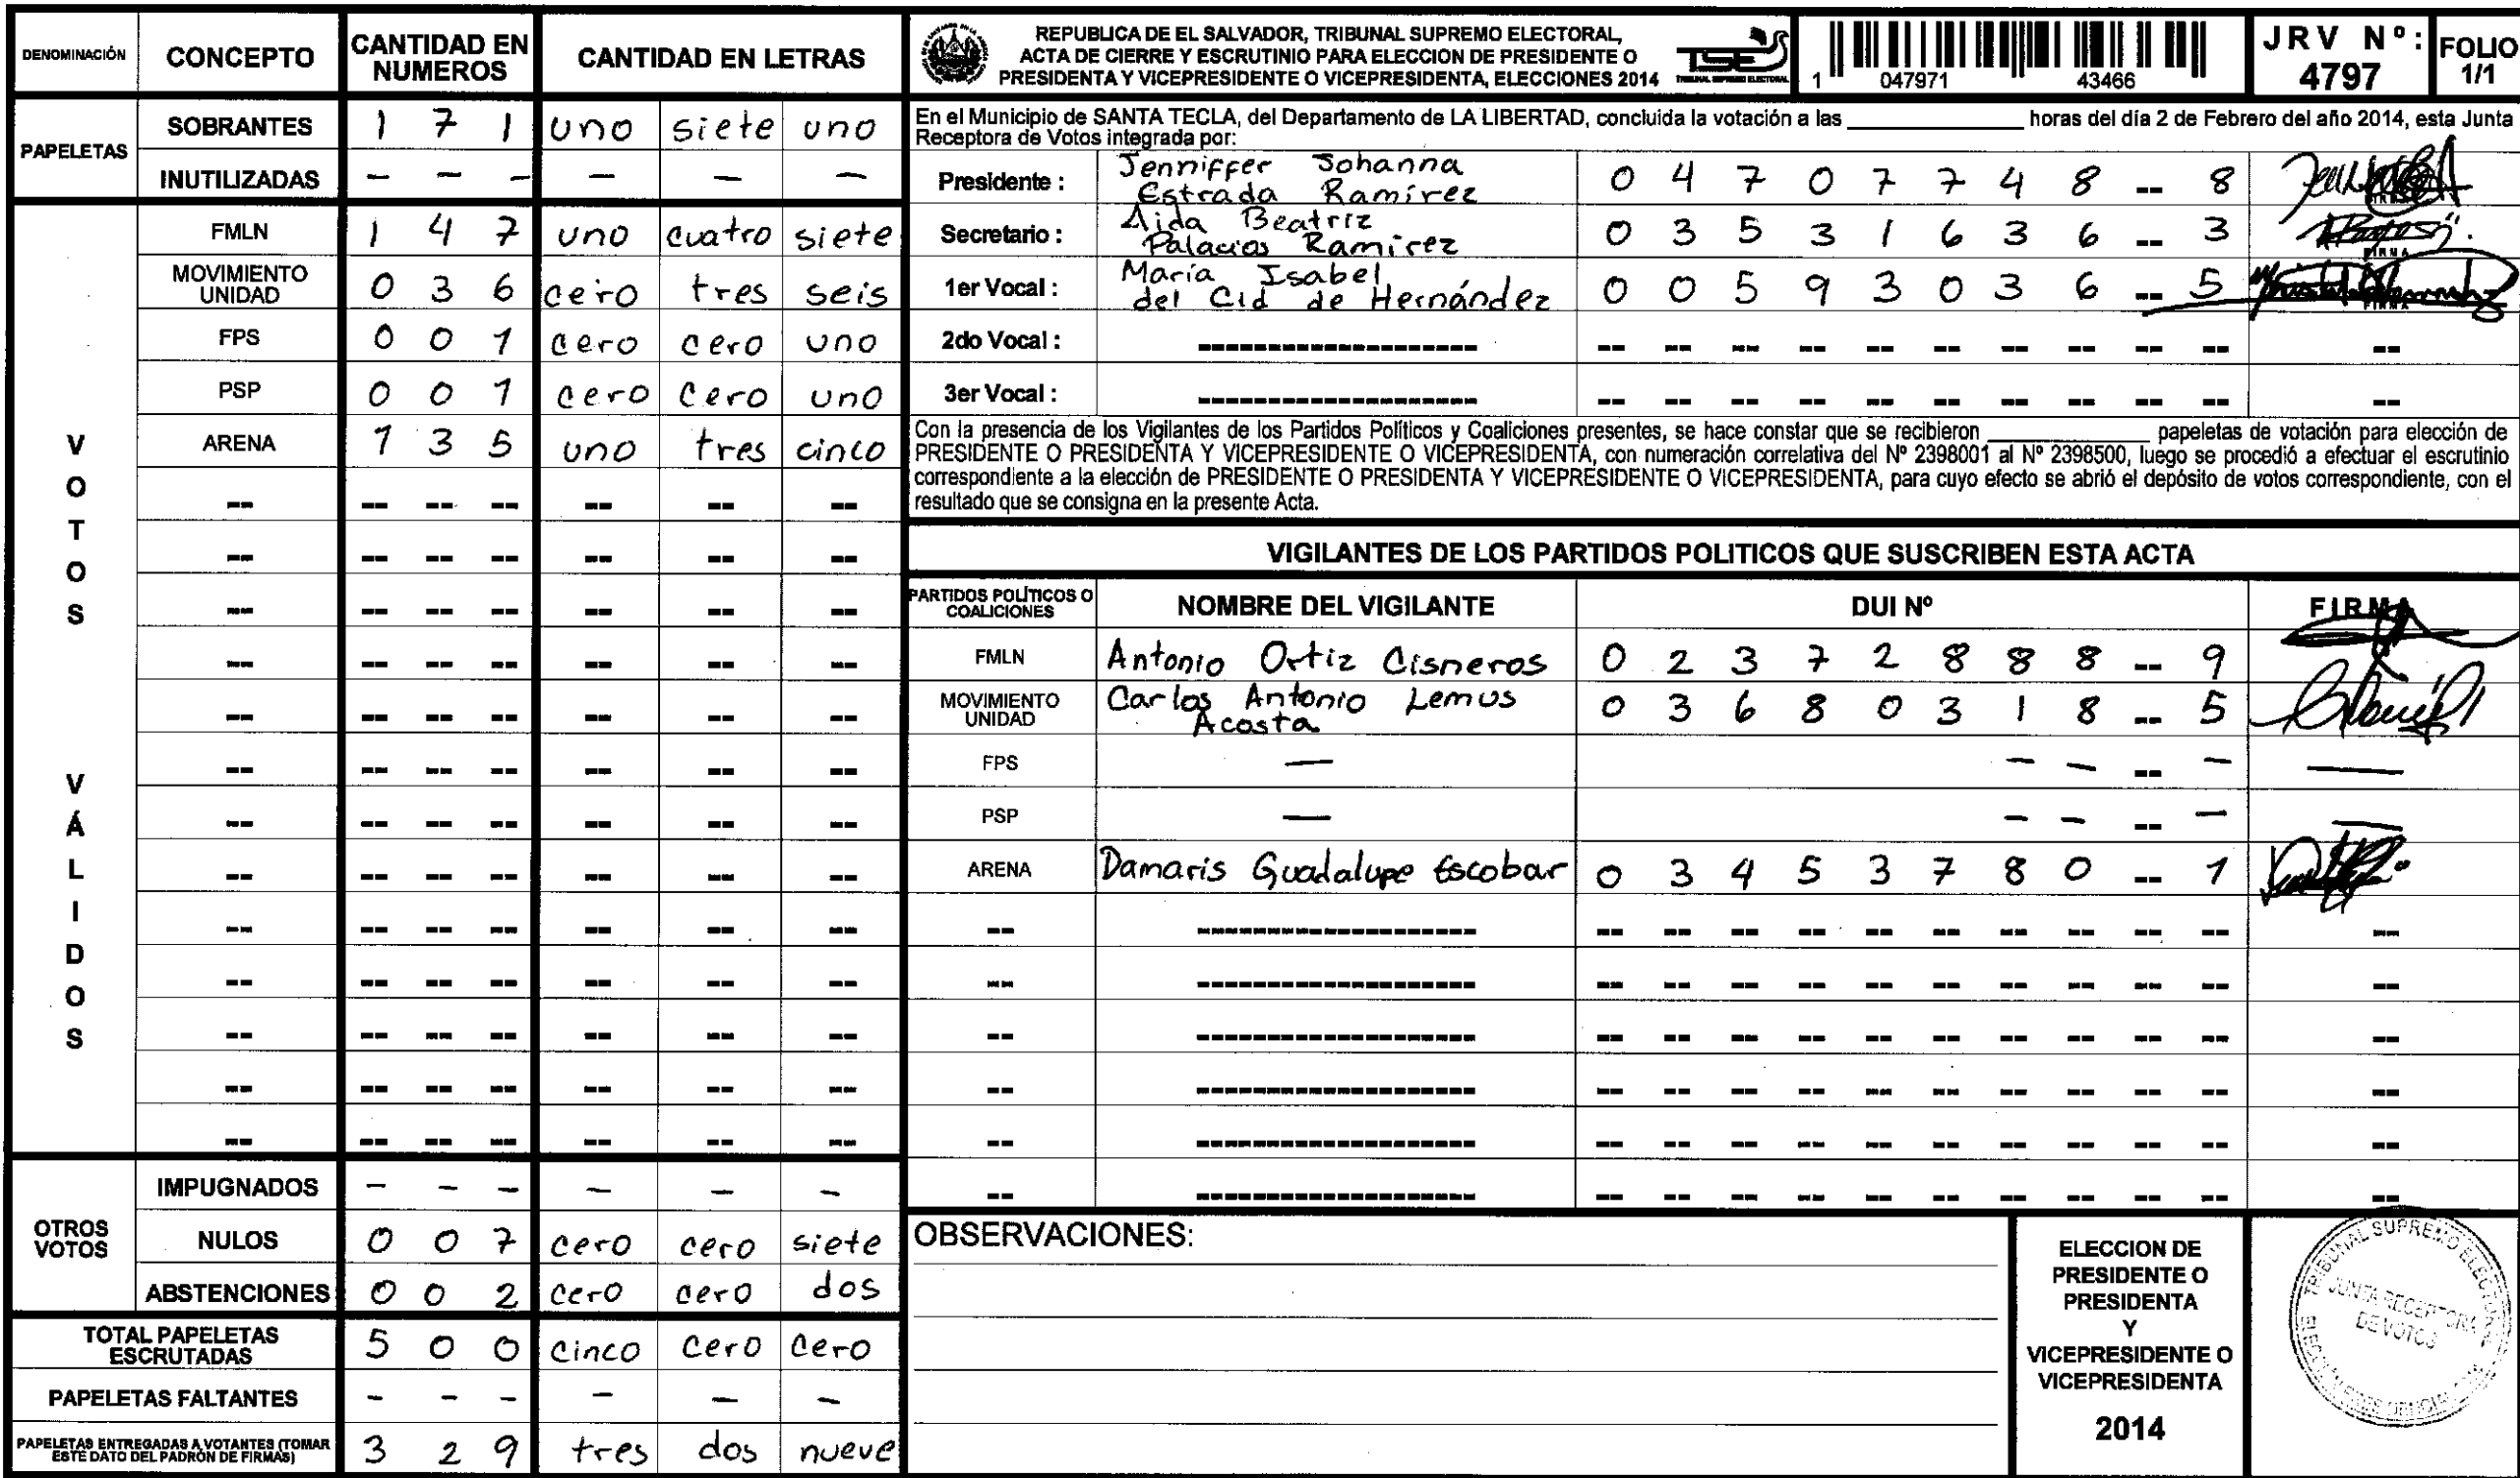 DENOMINACIÓN CONCEPTO CANTIDAD EN NUMEROS CANTIDAD EN LETRAS
PAPELETAS
SOBRANTES 1 7 1 uno siete uno
INUTILIZADAS - - - - - -
VOTOS VÁLIDOS
FMLN 1 4 7 uno cuatro siete
MOVIMIENTO UNIDAD 0 3 6 cero tres seis
FPS 0 0 1 cero cero uno
PSP 0 0 1 cero cero uno
ARENA 1 3 5 uno tres cinco
-- -- -- -- -- -- --
-- -- -- -- -- -- --
-- -- -- -- -- -- --
-- -- -- -- -- -- --
-- -- -- -- -- -- --
-- -- -- -- -- -- --
-- -- -- -- -- -- --
-- -- -- -- -- -- --
-- -- -- -- -- -- --
-- -- -- -- -- -- --
-- -- -- -- -- -- --
-- -- -- -- -- -- --
-- -- -- -- -- -- --
OTROS VOTOS
IMPUGNADOS - - - - - -
NULOS 0 0 7 cero cero siete
ABSTENCIONES 0 0 2 cero cero dos
TOTAL PAPELETAS ESCRUTADAS 5 0 0 cinco cero cero
PAPELETAS FALTANTES - - - - - -
PAPELETAS ENTREGADAS A VOTANTES (TOMAR ESTE DATO DEL PADRÓN DE FIRMAS) 3 2 9 tres dos nueve
REPUBLICA DE EL SALVADOR, TRIBUNAL SUPREMO ELECTORAL,
ACTA DE CIERRE Y ESCRUTINIO PARA ELECCION DE PRESIDENTE O
PRESIDENTA Y VICEPRESIDENTE O VICEPRESIDENTA, ELECCIONES 2014
TSE
TRIBUNAL SUPREMO ELECTORAL
1 047971 43466
JRV Nº: 4797
FOLIO 1/1
En el Municipio de SANTA TECLA, del Departamento de LA LIBERTAD, concluida la votación a las ____________ horas del día 2 de Febrero del año 2014, esta Junta
Receptora de Votos integrada por:
Presidente : Jenniffer Johanna Estrada Ramírez 0 4 7 0 7 7 4 8 -- 8
Secretario : Aida Beatriz Palacios Ramirez 0 3 5 3 1 6 3 6 -- 3
FIRMA
1er Vocal : María Isabel del Cid de Hernández 0 0 5 9 3 0 3 6 -- 5
FIRMA
2do Vocal : ------------------ -- -- -- -- -- -- -- -- -- -- --
3er Vocal : ------------------ -- -- -- -- -- -- -- -- -- -- --
Con la presencia de los Vigilantes de los Partidos Políticos y Coaliciones presentes, se hace constar que se recibieron ____________ papeletas de votación para elección de
PRESIDENTE O PRESIDENTA Y VICEPRESIDENTE O VICEPRESIDENTA, con numeración correlativa del Nº 2398001 al Nº 2398500, luego se procedió a efectuar el escrutinio
correspondiente a la elección de PRESIDENTE O PRESIDENTA Y VICEPRESIDENTE O VICEPRESIDENTA, para cuyo efecto se abrió el depósito de votos correspondiente, con el
resultado que se consigna en la presente Acta.
VIGILANTES DE LOS PARTIDOS POLITICOS QUE SUSCRIBEN ESTA ACTA
PARTIDOS POLÍTICOS O COALICIONES NOMBRE DEL VIGILANTE DUI Nº FIRMA
FMLN Antonio Ortiz Cisneros 0 2 3 7 2 8 8 8 -- 9
MOVIMIENTO UNIDAD Carlos Antonio Lemus Acosta 0 3 6 8 0 3 1 8 -- 5
FPS — - - -- - —
PSP — - - -- - —
ARENA Damaris Guadalupe Escobar 0 3 4 5 3 7 8 0 -- 1
-- ------------------ -- -- -- -- -- -- -- -- -- -- --
-- ------------------ -- -- -- -- -- -- -- -- -- -- --
-- ------------------ -- -- -- -- -- -- -- -- -- -- --
-- ------------------ -- -- -- -- -- -- -- -- -- -- --
-- ------------------ -- -- -- -- -- -- -- -- -- -- --
-- ------------------ -- -- -- -- -- -- -- -- -- -- --
OBSERVACIONES:
ELECCION DE
PRESIDENTE O
PRESIDENTA
Y
VICEPRESIDENTE O
VICEPRESIDENTA
2014
TRIBUNAL SUPREMO ELECTORAL
JUNTA RECEPTORA
DE VOTOS